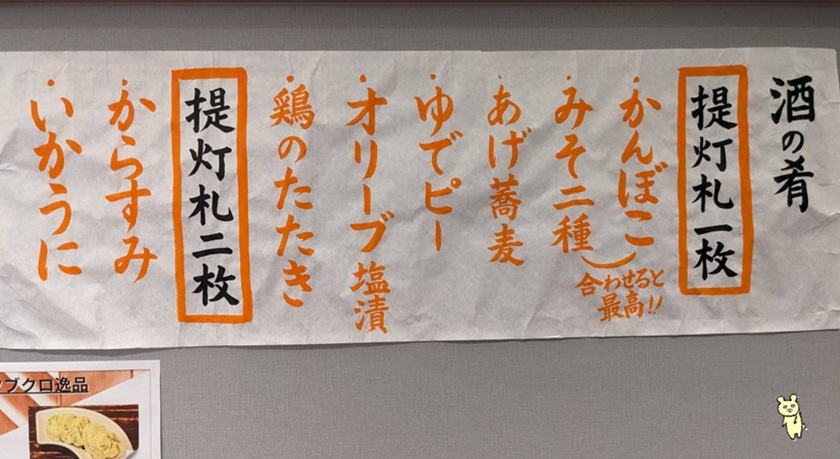 酒の肴
提灯札一枚
・かんぼこ
・みそ二種
合わせると
最高!!
・あげ蕎麦
・ゆでピー
・オリーブ塩漬
・鶏のたたき
提灯札二枚
・からすみ
・いかうに
ブクロ逸品